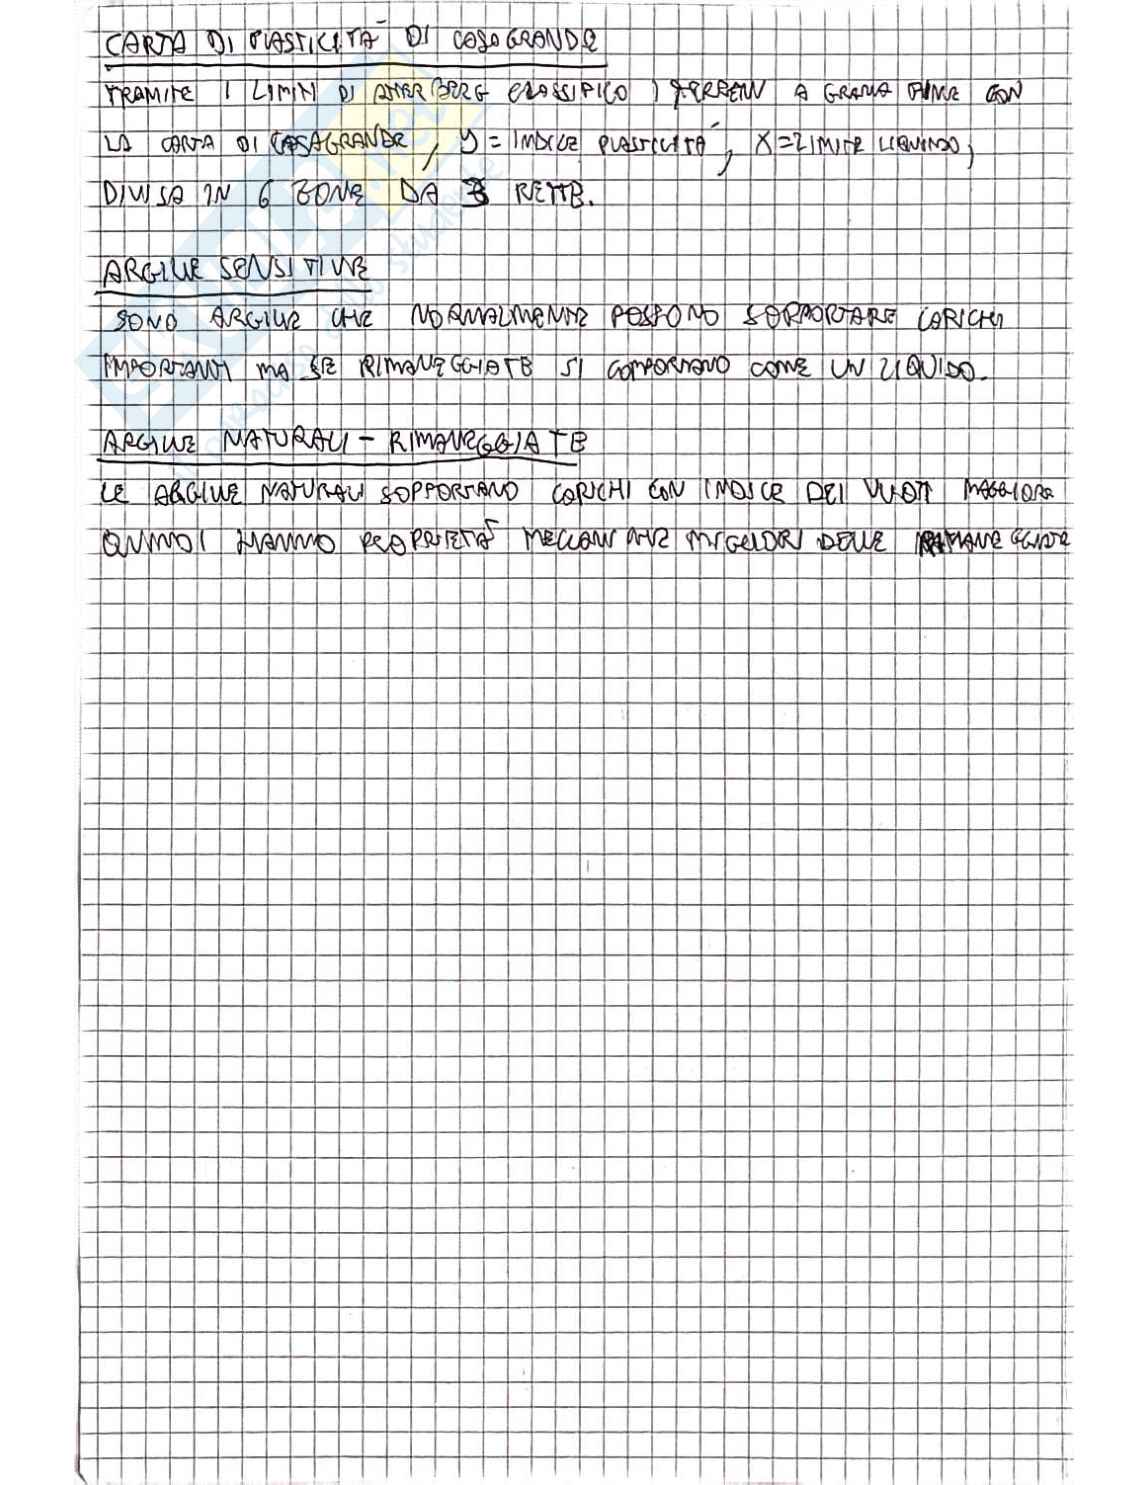 CARTA DI PLASTICITÀ DI CASAGRANDE
TRAMITE I LIMITI DI ATTERBERG CLASSIFICO I TERRENI A GRANA FINE CON
LA CARTA DI CASAGRANDE, Y = INDICE PLASTICITÀ, X = LIMITE LIQUIDO,
DIVISA IN 6 ZONE DA 3 RETTE.
ARGILLE SENSITIVE
SONO ARGILLE CHE NORMALMENTE POSSONO SOPPORTARE CARICHI
IMPORTANTI MA SE RIMANEGGIATE SI COMPORTANO COME UN LIQUIDO.
ARGILLE NATURALI - RIMANEGGIATE
LE ARGILLE NATURALI SOPPORTANO CARICHI CON INDICE DEI VUOTI MAGGIORE
QUINDI HANNO PROPRIETÀ MECCANICHE MIGLIORI DELLE RIMANEGGIATE